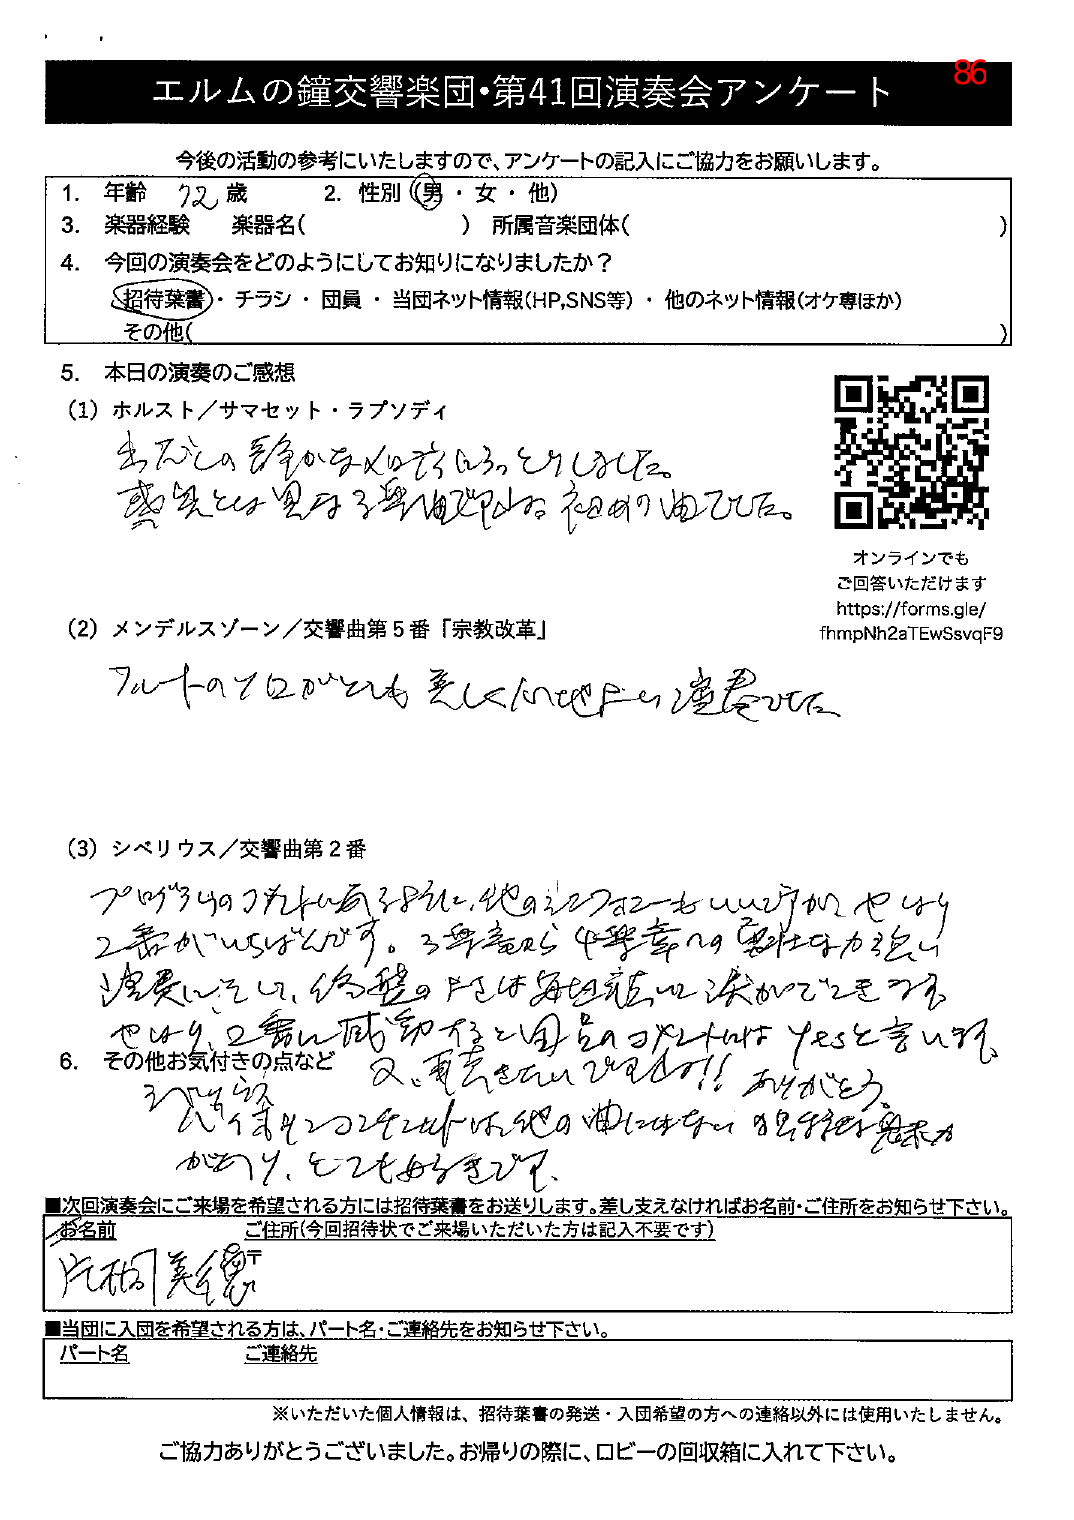 86
エルムの鐘交響楽団・第41回演奏会アンケート
今後の活動の参考にいたしますので、アンケートの記入にご協力をお願いします。
1. 年齢 72 歳 2. 性別 (男 ・ 女 ・ 他)
3. 楽器経験 楽器名( ) 所属音楽団体( )
4. 今回の演奏会をどのようにしてお知りになりましたか？
招待葉書 ・ チラシ ・ 団員 ・ 当団ネット情報(HP,SNS等) ・ 他のネット情報(オケ専ほか)
その他( )
5. 本日の演奏のご感想
(1) ホルスト／サマセット・ラプソディ
出だしの静かなメロディにうっとりしました。
惑星とは異なる 初めての曲でした。
オンラインでも
ご回答いただけます
https://forms.gle/
fhmpNh2aTEwSsvqF9
(2) メンデルスゾーン／交響曲第５番「宗教改革」
フルートのソロがとても美しく心地よい演奏でした
(3) シベリウス／交響曲第２番
プログラムのコメントにある様に、他のシンフォニーもいいですが、やはり
2番がいちばんです。3楽章から4楽章への 力強い
演奏に、そして、 涙がでてきます
やはり、2番に感動すると団員のコメントには Yesと言います。
6. その他お気付きの点など
又、再会 !! ありがとう。
シベリウス
バイオリンコンチェルトは、他の曲にはない 魅力
があり、とても好きです。
■次回演奏会にご来場を希望される方には招待葉書をお送りします。差し支えなければお名前・ご住所をお知らせ下さい。
お名前 ご住所(今回招待状でご来場いただいた方は記入不要です)
片桐 美徳 〒
■当団に入団を希望される方は、パート名・ご連絡先をお知らせ下さい。
パート名 ご連絡先
※いただいた個人情報は、招待葉書の発送・入団希望の方への連絡以外には使用いたしません。
ご協力ありがとうございました。お帰りの際に、ロビーの回収箱に入れて下さい。